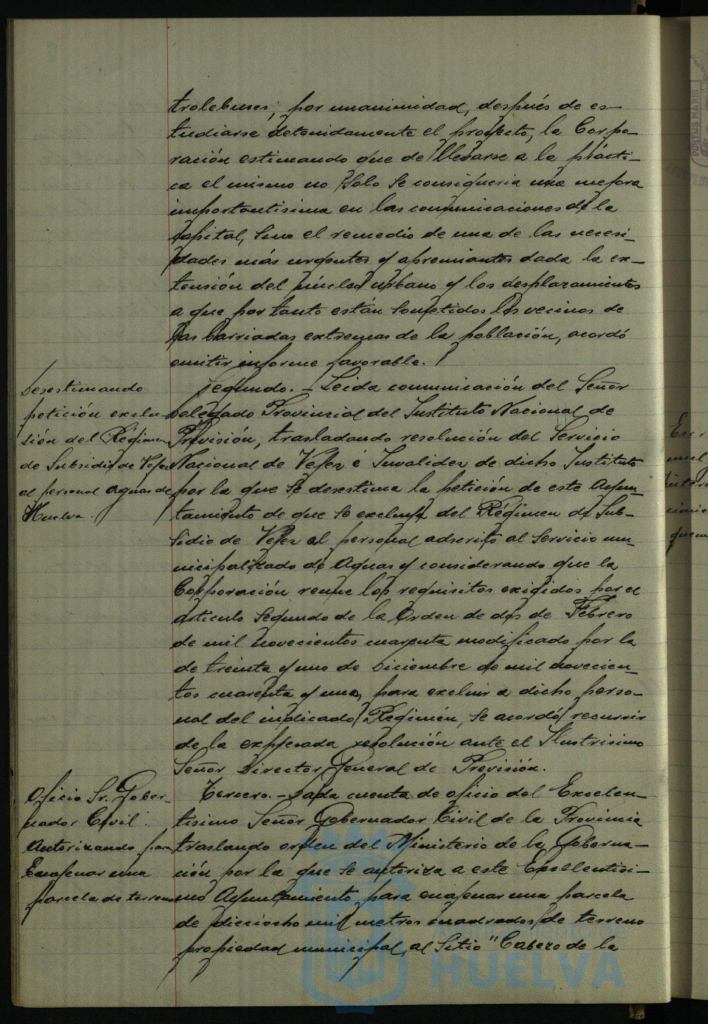 trolebuses; por unanimidad, después de es-
tudiarse detenidamente el proyecto, la Corpo-
ración estimando que de llevarse a la prácti-
ca el mismo no solo se conseguiria una mejora
importantisima en las comunicaciones de la
Capital, sino el remedio de una de las necesi-
dades más urgentes y apremiantes dada la ex-
tensión del núcleo urbano y los desplazamientos
a que por tanto están sometidos los vecinos de
las barriadas extremas de la población, acordó
emitir informe favorable.
Desestimando
petición exclu-
sión del Régimen
de Subsidio de Vejez
al personal aguas de
Huelva.
Segundo.- Leida comunicación del Señor
Delegado Provincial del Instituto Nacional de
Previsión, trasladando resolución del Servicio
Nacional de Vejez é Invalidez de dicho Instituto
por la que se desestima la petición de este Ayun-
tamiento de que se excluya del Régimen de Sub-
sidio de Vejez al personal adscrito al Servicio mu-
nicipalizado de Aguas y considerando que la
Corporación reune los requisitos exigidos por el
articulo segundo de la Orden de dos de Febrero
de mil novecientos cuarenta modificado por la
de treinta y uno de Diciembre de mil novecien-
tos cuarenta y uno, para excluir a dicho perso-
nal del indicado Régimen, se acordó recurrir
de la expresada resolución ante el Ilustrisimo
Señor Director General de Previsión.
Oficio Sr. Gober-
nador Civil
Autorizando para
Enajenar una
parcela de terreno
Tercero.- Dada cuenta de oficio del Excelen-
tisimo Señor Gobernador Civil de la Provincia
traslando orden del Ministerio de la Goberna-
ción por la que se autoriza a este Excelentisi-
mo Ayuntamiento para enajenar una parcela
de dieciocho mil metros cuadrados de terreno
propiedad municipal, al Sitio "Cabezo de la
HUELVA